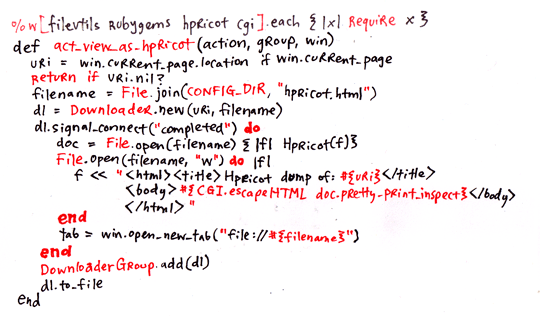 %w[fileutils rubygems hpricot cgi].each { |x| require x }
def act_view_as_hpricot(action, group, win)
uri = win.current_page.location if win.current_page
return if uri.nil?
filename = File.join(CONFIG_DIR, "hpricot.html")
dl = Downloader.new(uri, filename)
dl.signal_connect("completed") do
doc = File.open(filename) { |f| Hpricot(f) }
File.open(filename, "w") do |f|
f << "<html><title>Hpricot dump of: #{uri}</title>
<body>#{CGI.escapeHTML doc.pretty_print_inspect}</body>
</html>"
end
tab = win.open_new_tab("file://#{filename}")
end
DownloaderGroup.add(dl)
dl.to_file
end